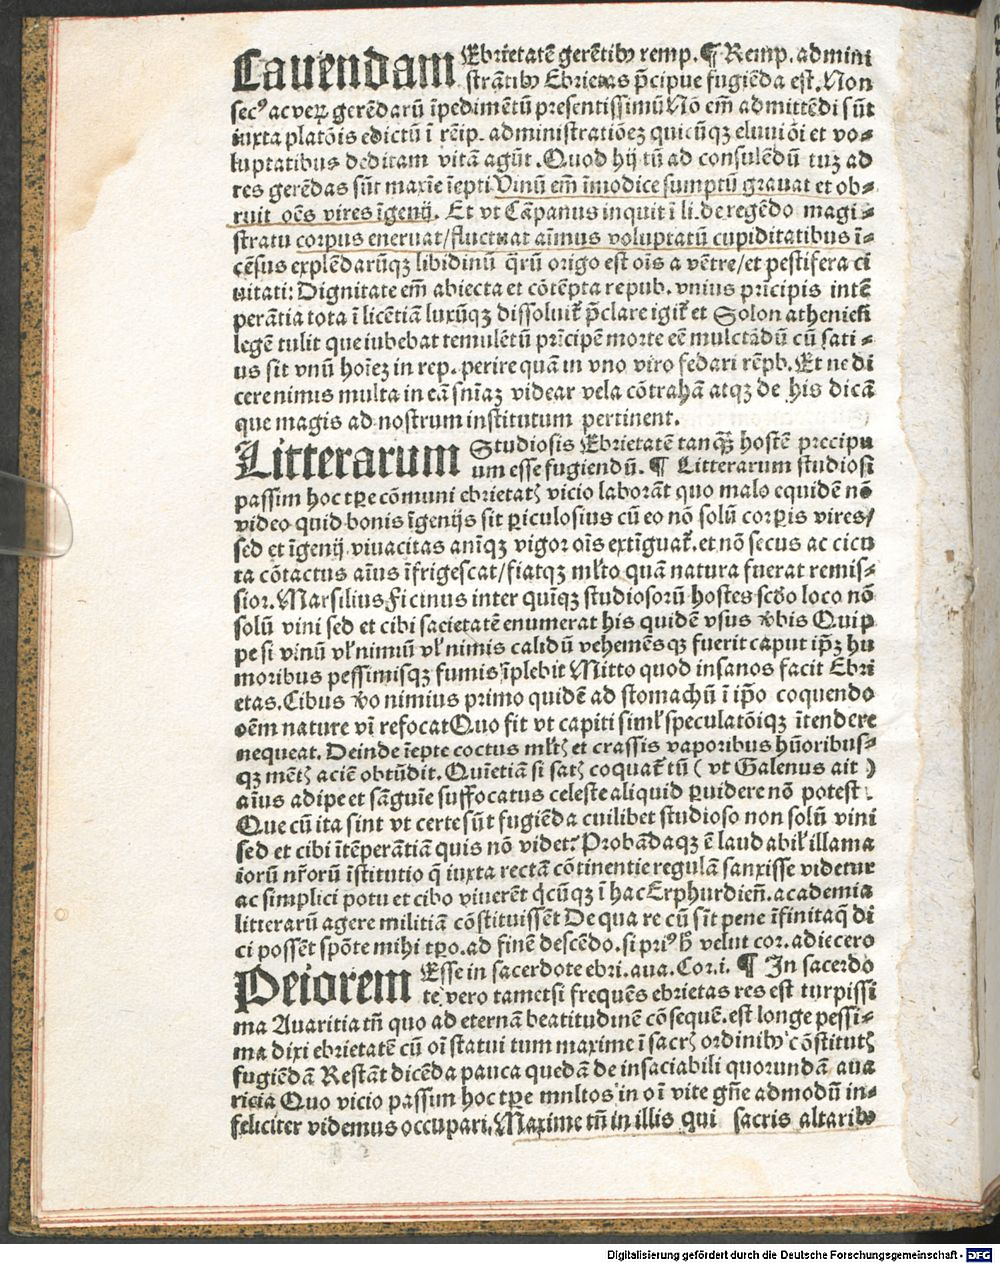 Cauendam Ebrietatē gerētibꝰ remp. ¶ Remp. admini
strātibꝰ Ebrietas p̄cipue fugiēda est. Non
secꝰ ac veꝝ gerēdarū īpedimētū presentissimū Nō em̄ admittēdi sūt
iuxta platōis edictū ī reip. administratiōeꝫ quicūqꝫ eluuiōi et vo⸗
luptatibus deditam vitā agūt. Quod hij tū ad consulēdū tuꝫ ad
res gerēdas sūt maxīe īepti Vinū em̄ īmodice sumptū grauat et ob⸗
ruit oēs vires īgenij. Et vt Cāpanus inquit ī li. de regēdo magi⸗
stratu corpus eneruat/fluctuat aīmus voluptatū cupiditatibus ī⸗
cēsus explēdarūqꝫ libidinū q̄rū origo est oīs a vētre/et pestifera ci
uitati: Dignitate em̄ abiecta et cōtēpta repub. vnius prīcipis intē
perātia tota ī licētiā luxūqꝫ dissoluit᷑ p̄clare igit᷑ et Solon atheniēsi
legē tulit que iubebat temulētū prīcipē morte eē mulctādū cū sati⸗
us sit vnū hoīeꝫ in rep. perire quā in vno viro fedari rēpb. Et ne di
cere nimus multa in eā sn̄iaꝫ videar vela cōtrahā atqꝫ de his dicā
que magis ad nostrum institutum pertinent.
Litterarum Studiosis Ebrietatē tanq̄ꝫ hostē precipu
um esse fugiendū. ¶ Litterarum studiosi
passim hoc tꝑe cōmuni ebrietatꝭ vicio laborāt quo malo equidē nō
video quid bonis īgenijs sit ꝑiculosius cū eo nō solū corꝑis vires/
sed et īgenij viuacitas anīqꝫ vigor oīs extīguat᷑. et nō secus ac cicu
ta cōtactus aīus īfrigescat/fiatqꝫ ml̄to quā natura fuerat remis⸗
sior. Marsilius Ficinus inter quīqꝫ studiosorū hostes scd̄o loco nō
solū vini sed et cibi sacietatē enumerat his quidē vsus v̄bis Quip
pe si vinū vl̓ nimiū vl̓ nimis calidū vehemēsqꝫ fuerit caput ip̄ꝫ hu
moribus pessimisqꝫ fumis īplebit Mitto quod insanos facit Ebri
etas. Cibus v̄o nimius primo quidē ad stomachū ī ip̄o coquendo
oēm nature vī refocat Quo fit vt capiti siml̓ speculatōiqꝫ ītendere
nequeat. Deinde īepte coctus ml̓tꝭ et crassis vaporibus hūoribus⸗
qꝫ mētꝭ aciē obtūdit. Quīetiā si satꝭ coquat᷑ tū ( vt Galenus ait )
aīus adipe et sāguīe suffocatus celeste aliquid ꝑuidere nō potest.
Que cū ita sint vt certe sūt fugiēda cuilibet studioso non solū vini
sed et cibi ītēperātiā quis nō videt᷑? Probādaqꝫ ē laudabil̓ illa ma
iorū nr̄orū īstitutio q̄ iuxta rectā cōtinentie regulā sanxisse videtur
ac simplici potu et cibo viuerēt q̇cūqꝫ ī hac Erphurdien̄. academia
litterarū agere militiā cōstituissēt De qua re cū sīt pene īfinita q̄ di
ci possēt spōte mihi tꝑo. ad finē descēdo. si priꝰ h̄ velut cor. adiecero
Peiorem Esse in sacerdote ebri. aua. Cor. i. ¶ In sacerdo
te vero tametsi frequēs ebrietas res est turpissi
ma Auaritia tn̄ quo ad eternā beatitudinē cōsequē. est longe pessi⸗
ma dixi ebrietatē cū oī statui tum maxime ī sacrꝭ ordinibꝰ cōstitutꝭ
fugiēdā Restāt dicēda pauca quedā de insaciabili quorundā aua
ricia Quo vicio passim hoc tꝑe multos in oī vite gn̄e admodū in⸗
feliciter videmus occupari. Maxime tn̄ in illis qui sacris altaribꝰ
Digitalisierung gefördert durch die Deutsche Forschungsgemeinschaft - DFG